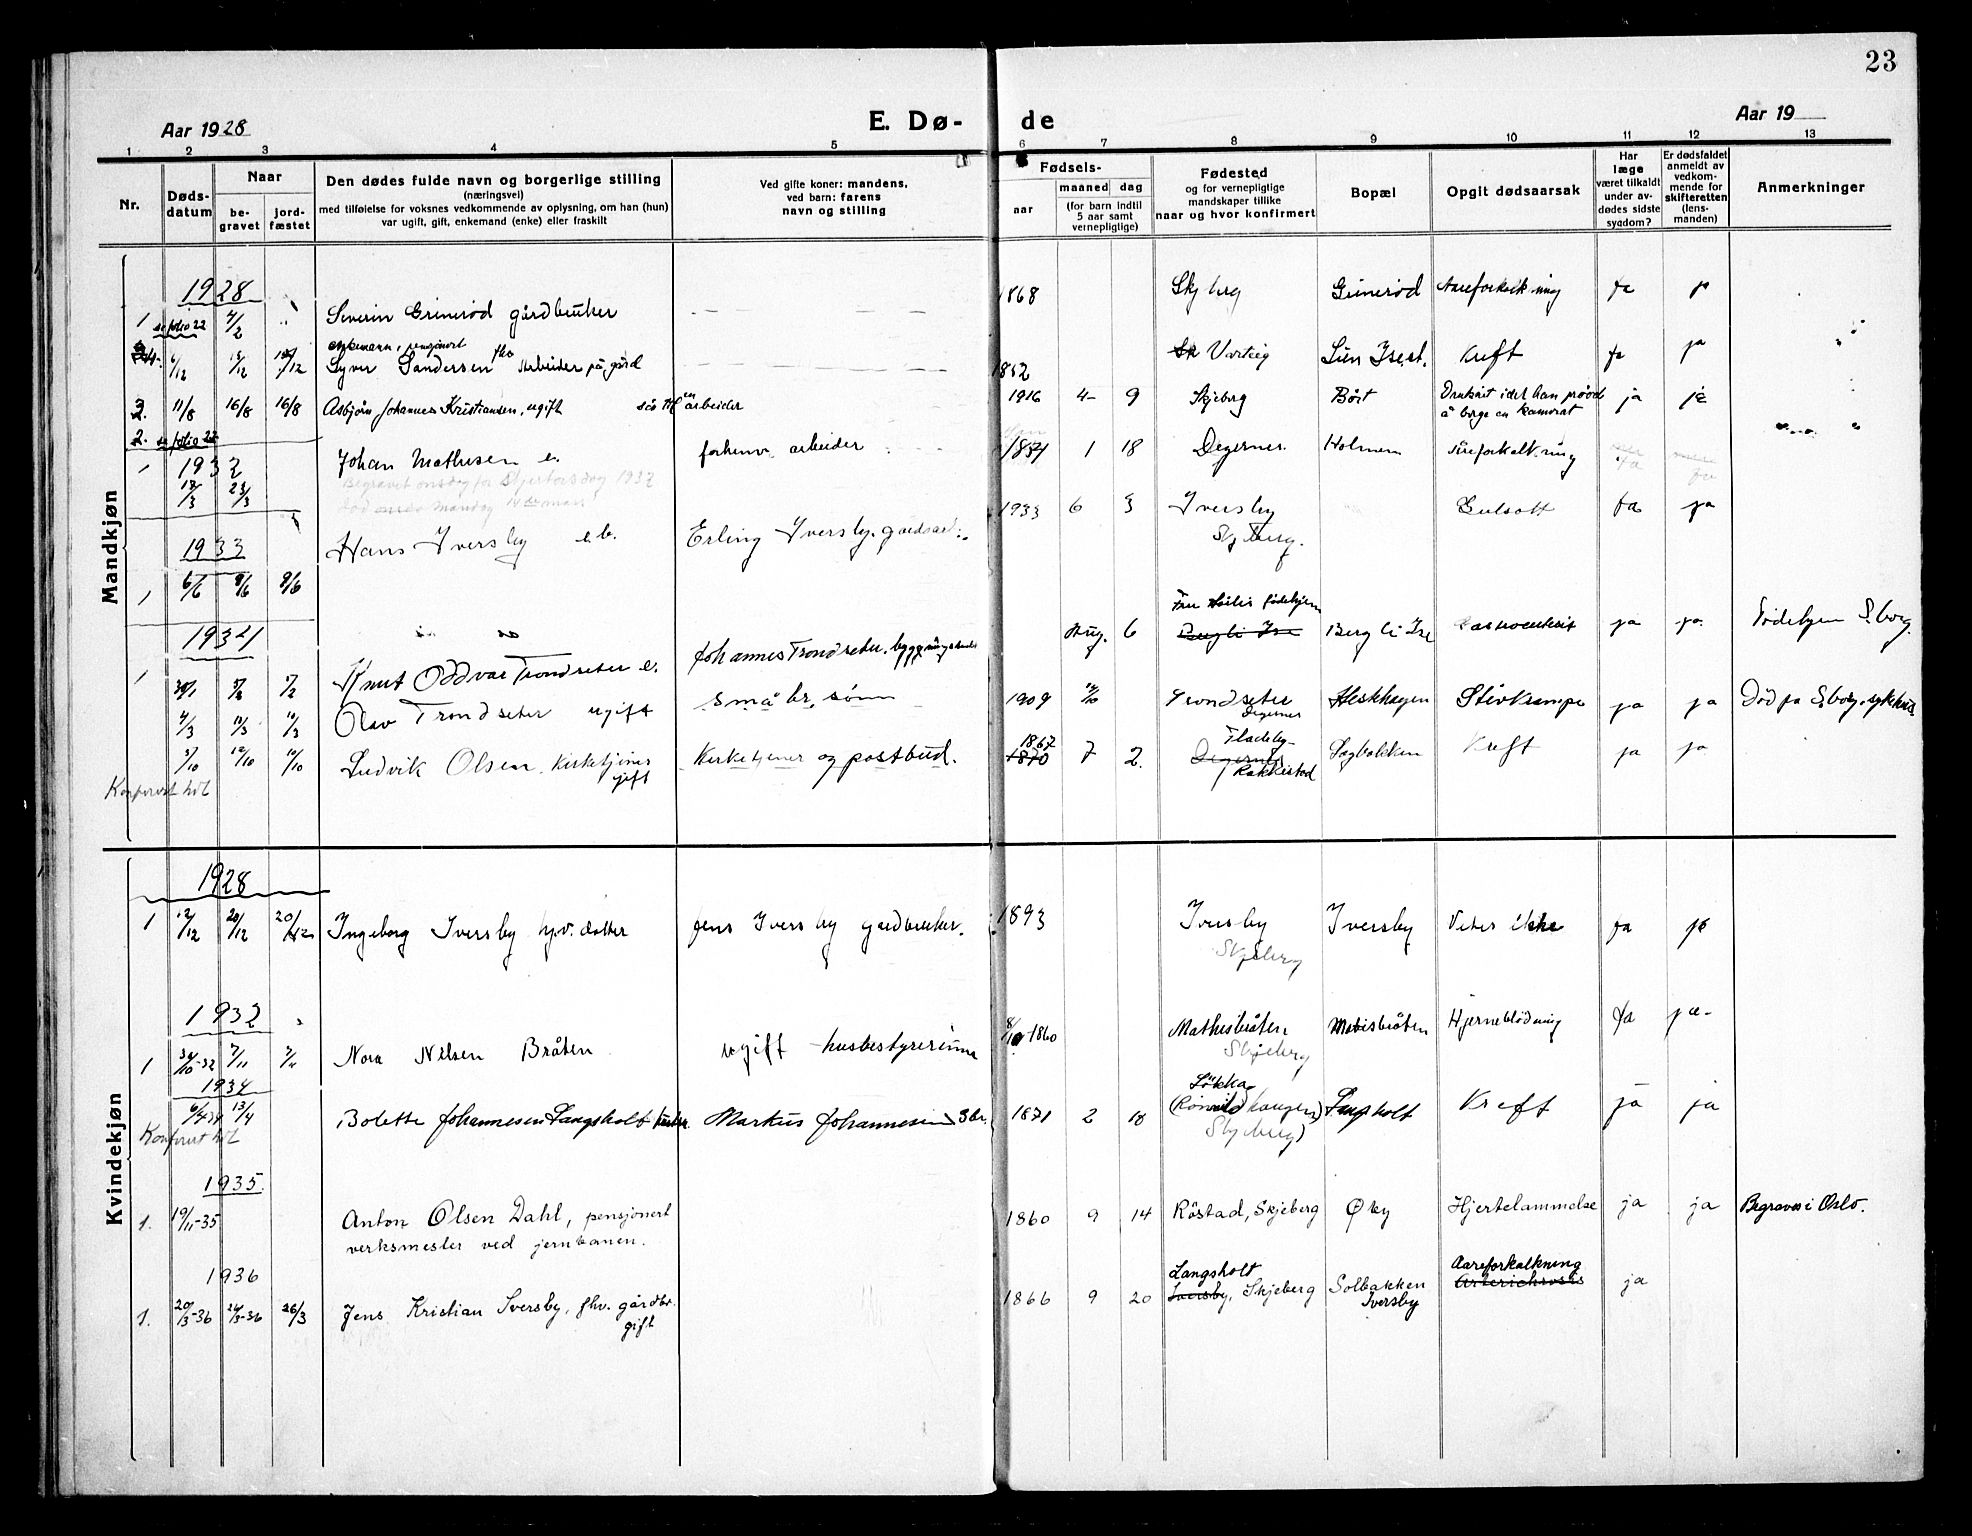 23
Aar 1928
E. Dø-
de
Aar 19
1 2 3 4 5 6 7 8 9 10 11 12 13
Nr.
Døds-
datum
Naar
be-
gravet
jord-
fæstet
Den dødes fulde navn og borgerlige stilling
(næringsvei)
med tilføielse for voksnes vedkommende av oplysning, om han (hun)
var ugift, gift, enkemand (enke) eller fraskilt
Ved gifte koner: mandens,
ved barn: farens
navn og stilling
Fødsels-
aar
maaned dag
(for barn indtil
5 aar samt
vernepligtige)
Fødested
og for vernepligtige
mandskaper tillike
naar og hvor konfirmert
Bopæl
Opgit dødsaarsak
Har
læge
været tilkaldt
under av-
dødes sidste
sygdom?
Er dødsfaldet
anmeldt av
vedkom-
mende for
skifteretten
(lens-
manden)
Anmerkninger
Mandkjøn
1928
1 se folio 22 4/2 Severin Grinerød gårdbruker 1868 Skjeberg Grinerød Aareforkalkning ja ja
6/12 15/12 Syver Sandersen fhv. Arbeider på gård 1852 Varteig Lien Isest. Kreft ja ja
2. 11/8 16/8 16/8 Asbjørn Johannes Kristiansen, ugift arbeider 1916 4 9 Skjeberg Bøst Druknet idet han prøvde
å berge en kamerat ja ja
2. se folio 22
1932
1 Johan Mathisen e. forhenv. arbeider 1854 1 18 Degernes Holmen Åreforkalkning ja
/3 23/3 Begravet onsdag før Skjærtorsdag 1932
1933
Hans Iversby e.b. Erling Iversby. gårdsarb. 1933 6 3 Iversby
Skjeberg. Gulsott ja ja
1 6/6 9/6 9/6
1934
1 Knut Oddvar Trondseter e. Johannes Trondseter. Aug. 6 Bergli Ise Bergli Ise ja ja Fødehjem S.borg.
4/3 10/3 10/3 Olav Trondseter ugift småbr. sønn 1909 Trondseter
Degernes Stivkrampe ja ja Død på S.borg. sykehus
3/10 10/10 10/10 Ludvik Olsen. Kirketjener
gift Kirketjener og postbud. 1867
1870 7 2. Fladeby
Degernes
Rakkestad Sagbakken Kreft ja ja
Konferert hit
Kvindekjøn
1928
1 12/12 20/12 20/12 Ingeborg Iversby hjv. datter Jens Iversby gårdbruker. 1893 Iversby
Skjeberg Iversby Vites ikke ja ja
1932
1 /10-32 7/11 7/11 Nora Nilsen Bråten ugift husbestyrerinne 8/10 1860 Mathisbråten
Skjeberg Matisbråten Hjerneblødning ja ja
1934
6/4 34 13/4 Bolette Johannesen Langsholt Markus Johannesen Sbr. 1871 2 10 Løkka
Skjeberg) Langsholt Kreft ja ja
Konferert hit
1935
1. 19/11-35 Anton Olsen Dahl, pensjonert
verksmester ved jernbanen. 1860 9 14 Röstad, Skjeberg Øby Hjertelammelse ja ja Begraves i Oslo.
1936
1. 20/3-36 26/3-36 26/3 Jens Kristian Iversby, fhv. gårdbr.
gift 1866 9 20 Langsholt
Iversby, Skjeberg Solbakken
Iversby Aareforkalkning ja